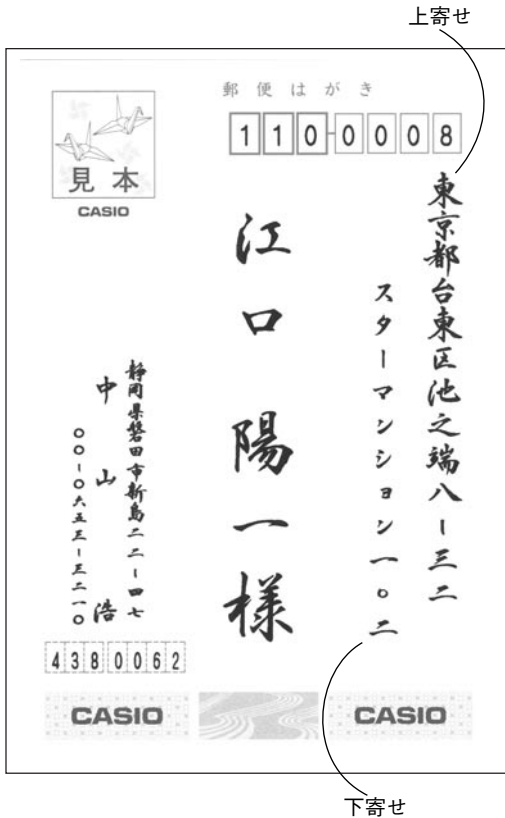 上寄せ
郵便はがき
110-0008
見本
CASIO
東京都台東区池之端八ー三二
スターマンション一〇二
江口陽一様
静岡県磐田市新島二二ー四七
中山浩
〇〇ー〇六五三ー三二一〇
4380062
CASIO
CASIO
下寄せ